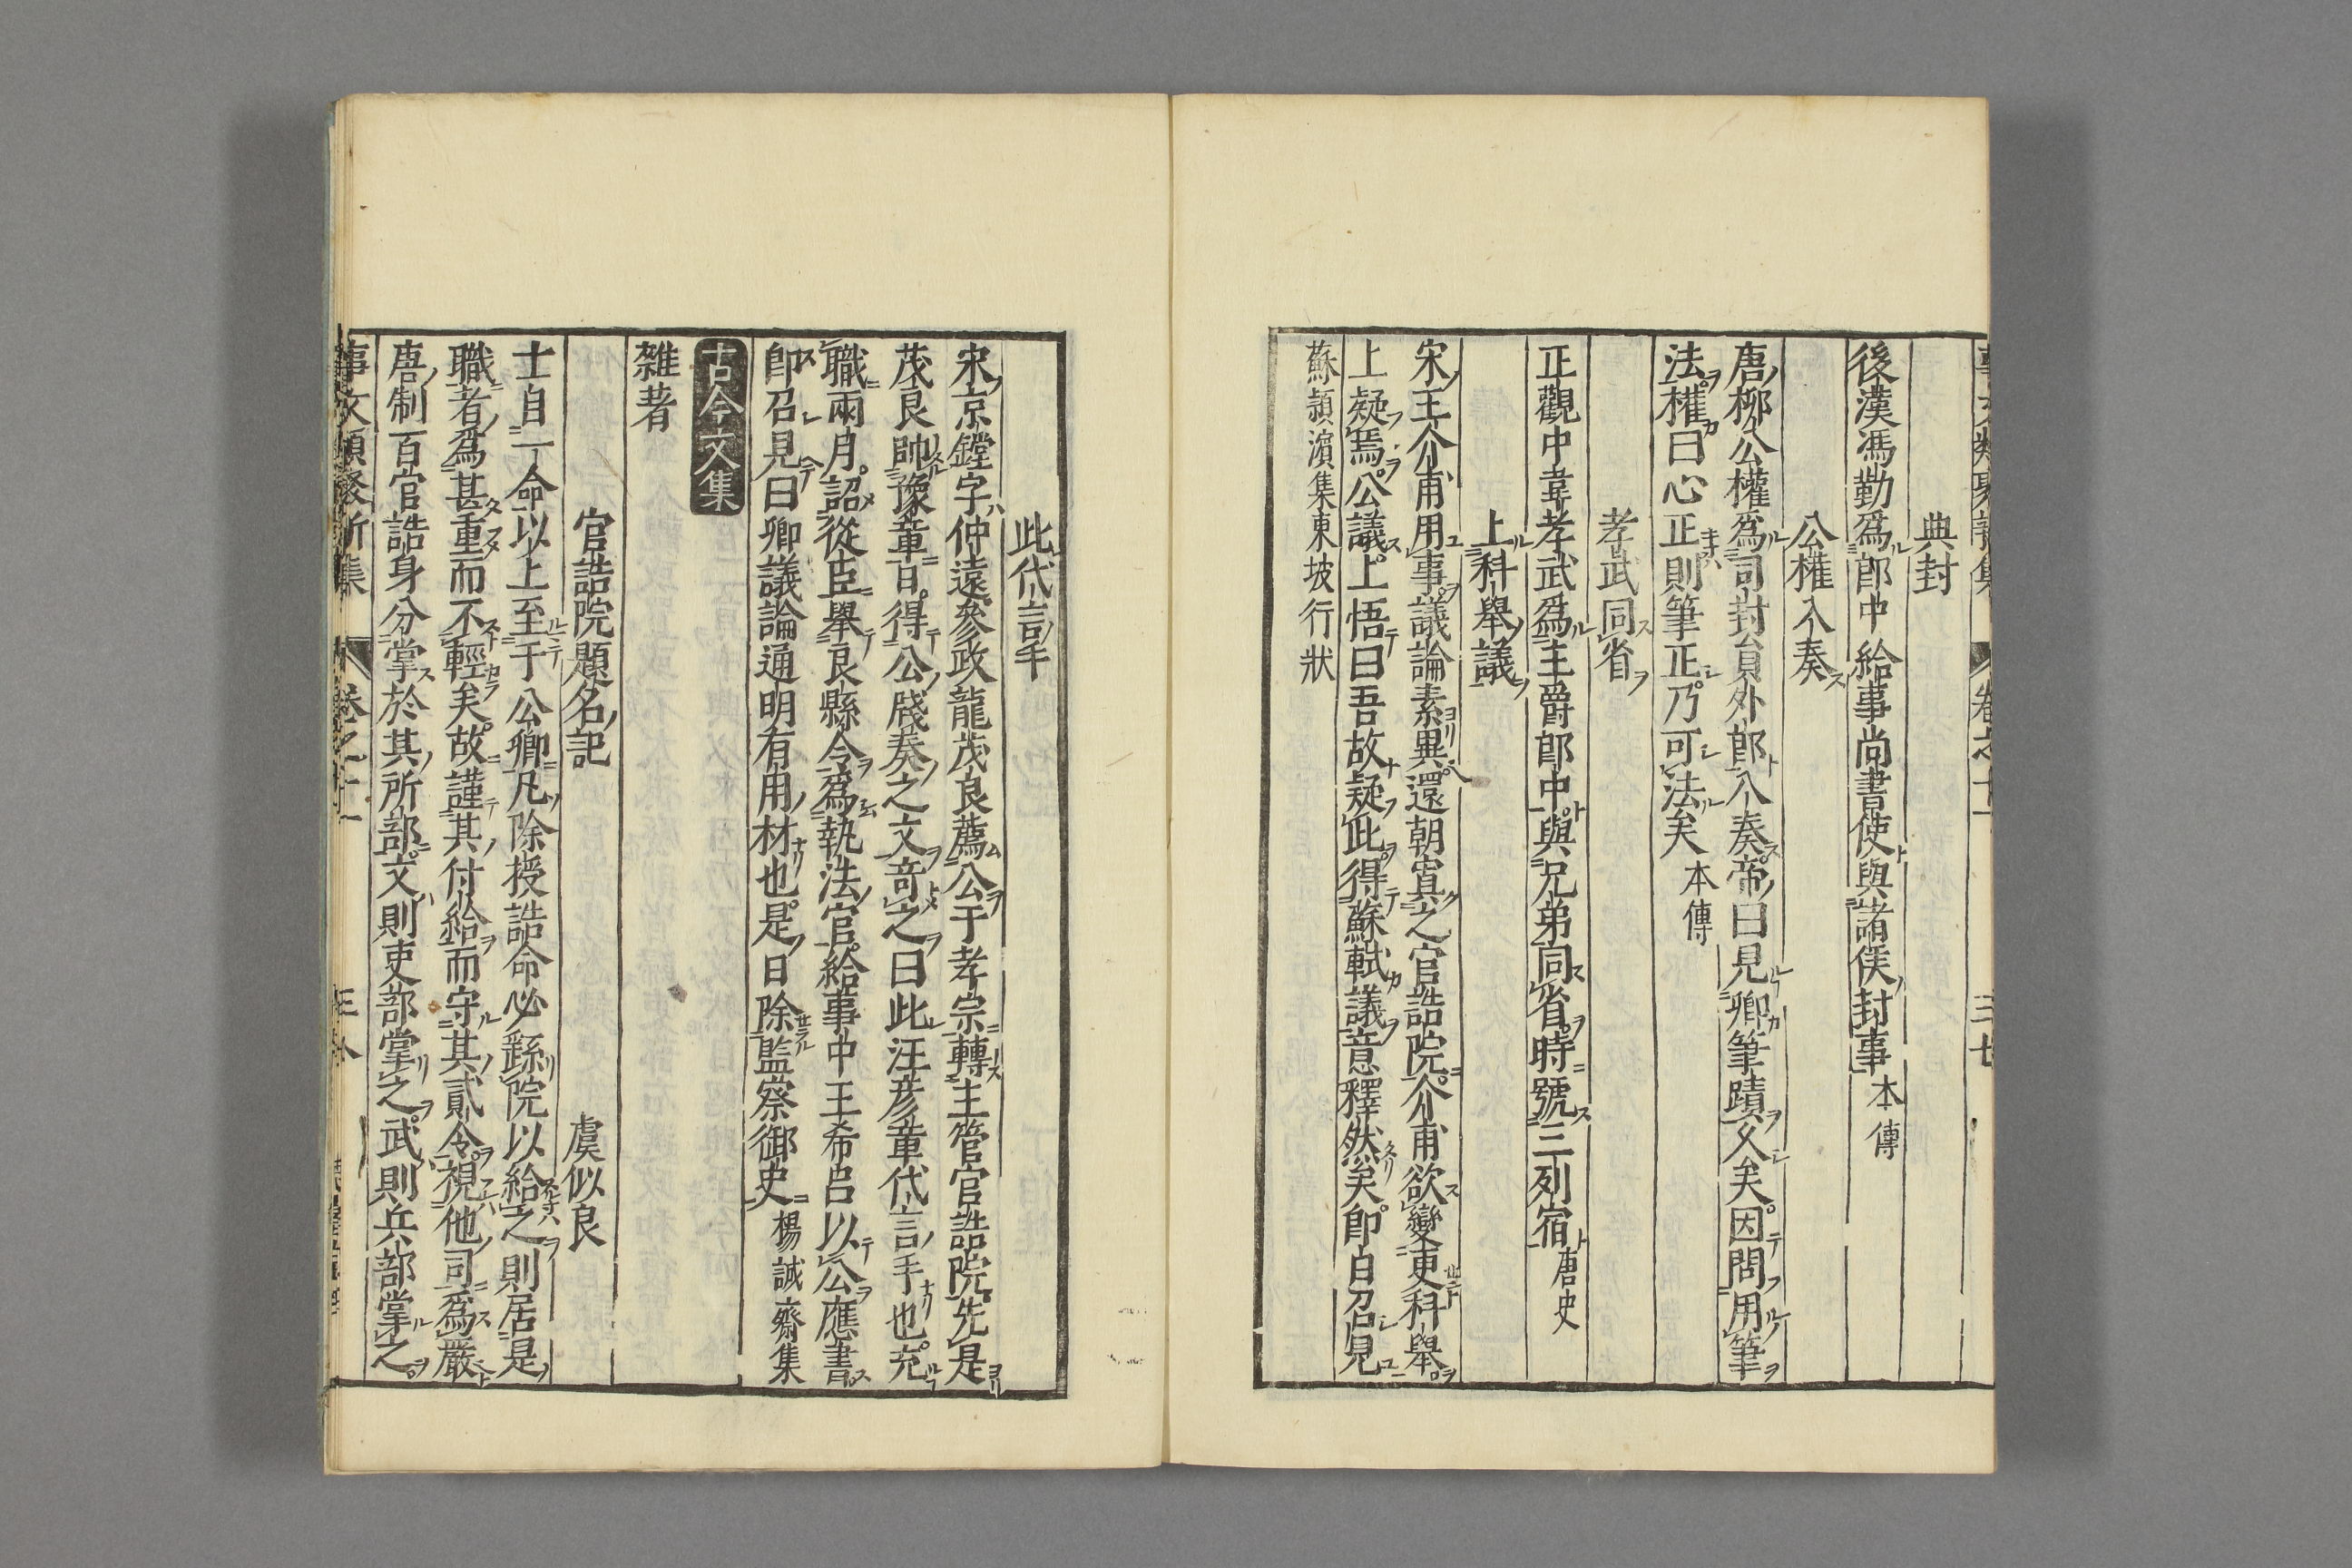 典封
後漢馮勤爲郎中給事尚書使與諸侯封事本傳
公權入奏
唐柳公權爲司封員外郎入奏帝曰見卿筆蹟久矣因問用筆
法權曰心正則筆正乃可法矣本傳
孝武同省
正觀中韋孝武爲主爵郎中與兄弟同省時號三列宿唐史
上科舉議
宋王介甫用事議論素異還朝寘之官誥院介甫欲變更科舉
上疑焉公議上悟曰吾故疑此得蘇軾議意釋然矣即白召見
蘇潁濵集東坡行狀
此代言手
宋京鏜字仲遠參政龍茂良薦公于孝宗轉主管官誥院先是
茂良帥豫章日得公牋奏之文竒之曰此汪彥章代言手也充
職兩月詔從臣舉良縣令爲執法官給事中王希呂以公應書
即召見曰卿議論通明有用材也是日除監察御史楊誠齋集
古今文集
雜著
官誥院題名記 虞似良
士自一命以上至于公卿凡除授誥命必繇院以給之則居是
職者爲甚重而不輕矣故謹其付給而守其貳令視他司爲嚴
唐制百官誥身分掌於其所部文則吏部掌之武則兵部掌之